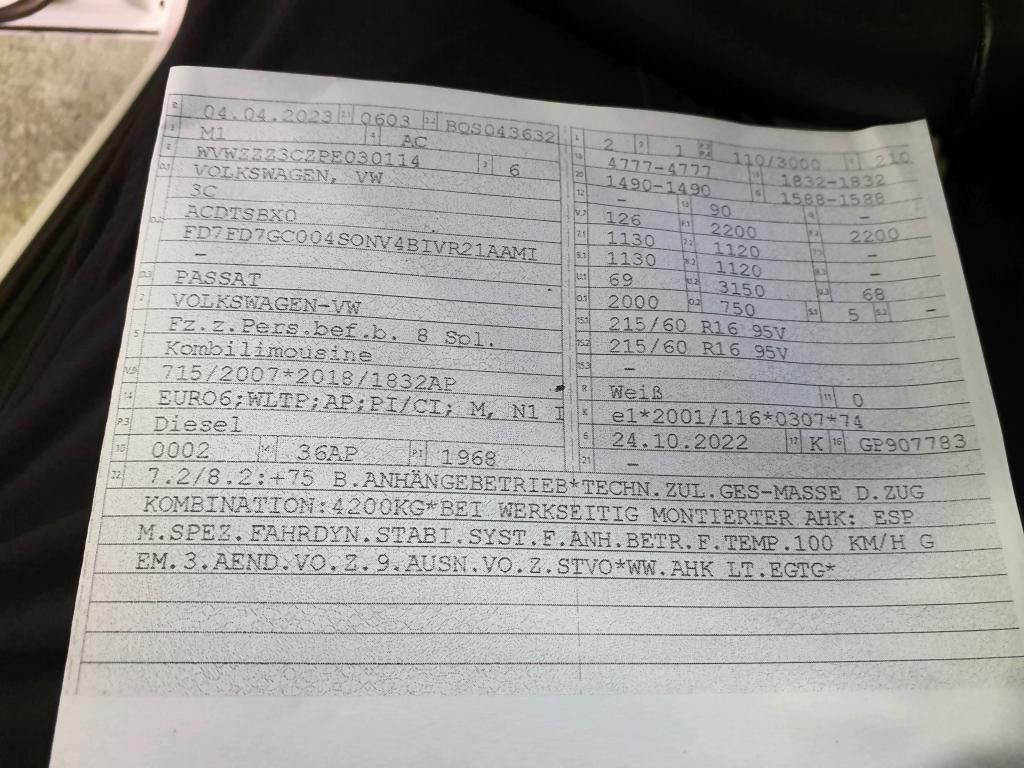 B 04.04.2023 2.1 0603 2.2 BQS043632
J M1 4 AC
E WVWZZZ3CZPE030114 3 6
D.1 VOLKSWAGEN, VW
3C
D.2 ACDTSBX0
FD7FD7GC004SONV4BIVR21AAMI
–
D.3 PASSAT
2 VOLKSWAGEN-VW
5 Fz.z.Pers.bef.b. 8 Spl.
Kombilimousine
V.9 715/2007*2018/1832AP
14 EURO6;WLTP;AP;PI/CI; M, N1 I
P.3 Diesel
10 0002 14.1 36AP P.1 1968
L 2 9 1 P.2 P.4 110/3000 T 210
18 4777-4777 19 1832-1832
20 1490-1490 G 1588-1588
12 – 13 90 Q –
V.7 126 F.1 2200 F.2 2200
7.1 1130 7.2 1120 7.3 –
8.1 1130 8.2 1120 8.3 –
U.1 69 U.2 3150 U.3 68
O.1 2000 O.2 750 S.1 5 S.2 –
15.1 215/60 R16 95V
15.2 215/60 R16 95V
15.3 –
R Weiß 11 0
K e1*2001/116*0307*74
6 24.10.2022 17 K 16 GP907783
21 –
22 7.2/8.2:+75 B.ANHÄNGEBETRIEB*TECHN.ZUL.GES-MASSE D.ZUG
KOMBINATION:4200KG*BEI WERKSEITIG MONTIERTER AHK: ESP
M.SPEZ.FAHRDYN.STABI.SYST.F.ANH.BETR.F.TEMP.100 KM/H G
EM.3.AEND.VO.Z.9.AUSN.VO.Z.STVO*WW.AHK LT.EGTG*